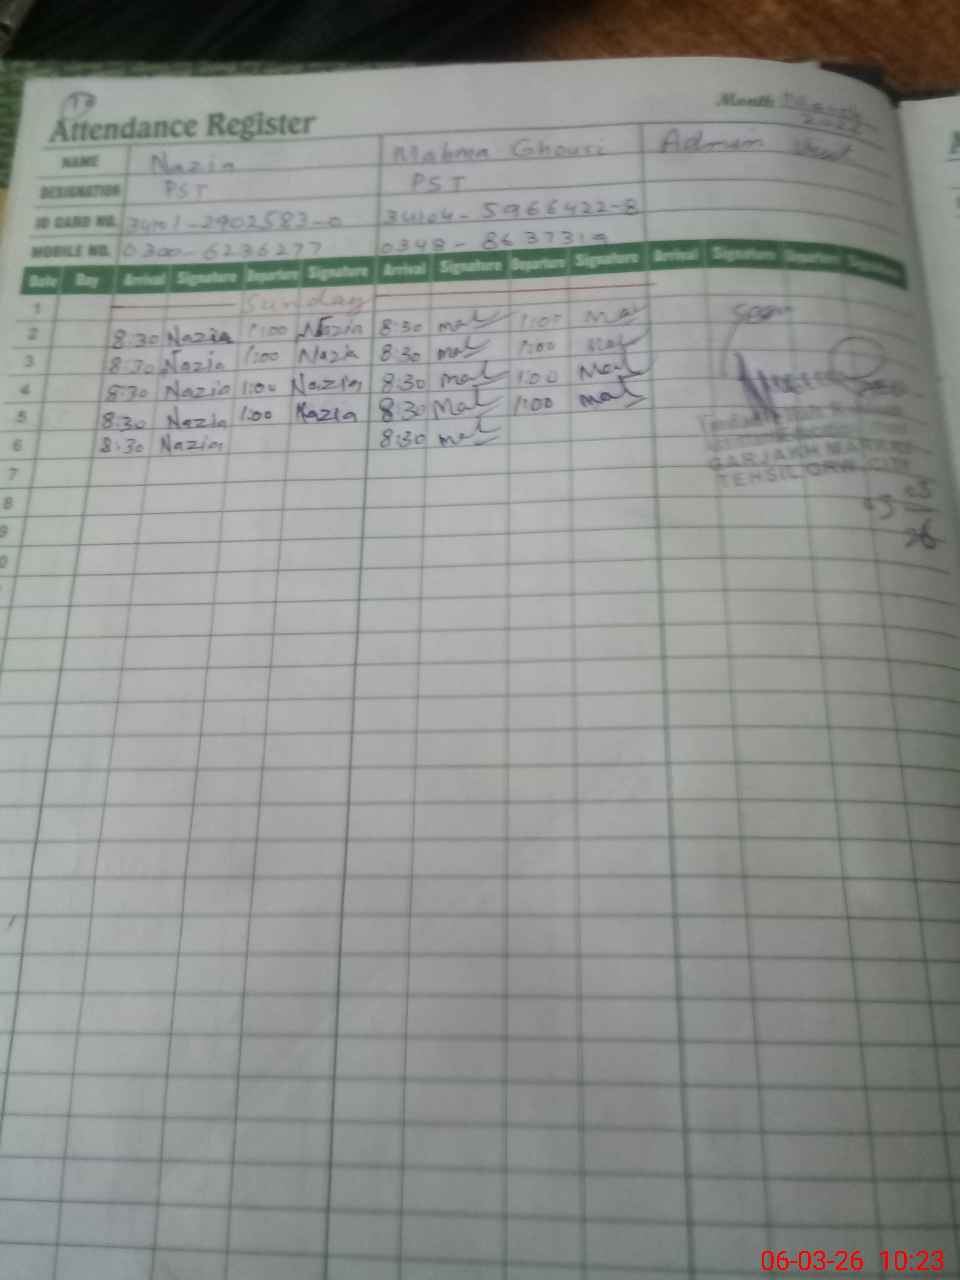 Attendance Register
Month March
NAME Nazia Mahnm Ghousi Admin Visit
DESIGNATION PST PST
ID CARD NO. 34101-2902583-0 34104-5966422-8
MOBILE NO. 0300-6236277 0348-8637319
Date Day Arrival Signature Departure Signature Arrival Signature Departure Signature Arrival Signature Departure Signature
1 Sunday
2 8:30 Nazia 1:00 Nazia 8:30 mal 1:00 mal
3 8:30 Nazia 1:00 Nazia 8:30 mal 1:00 mal
4 8:30 Nazia 1:00 Nazia 8:30 mal 1:00 mal
5 8:30 Nazia 1:00 Nazia 8:30 mal 1:00 mal
6 8:30 Nazia 8:30 mal
7
8
9
0
TEHSIL CITY
05
03
26
06-03-26 10:23